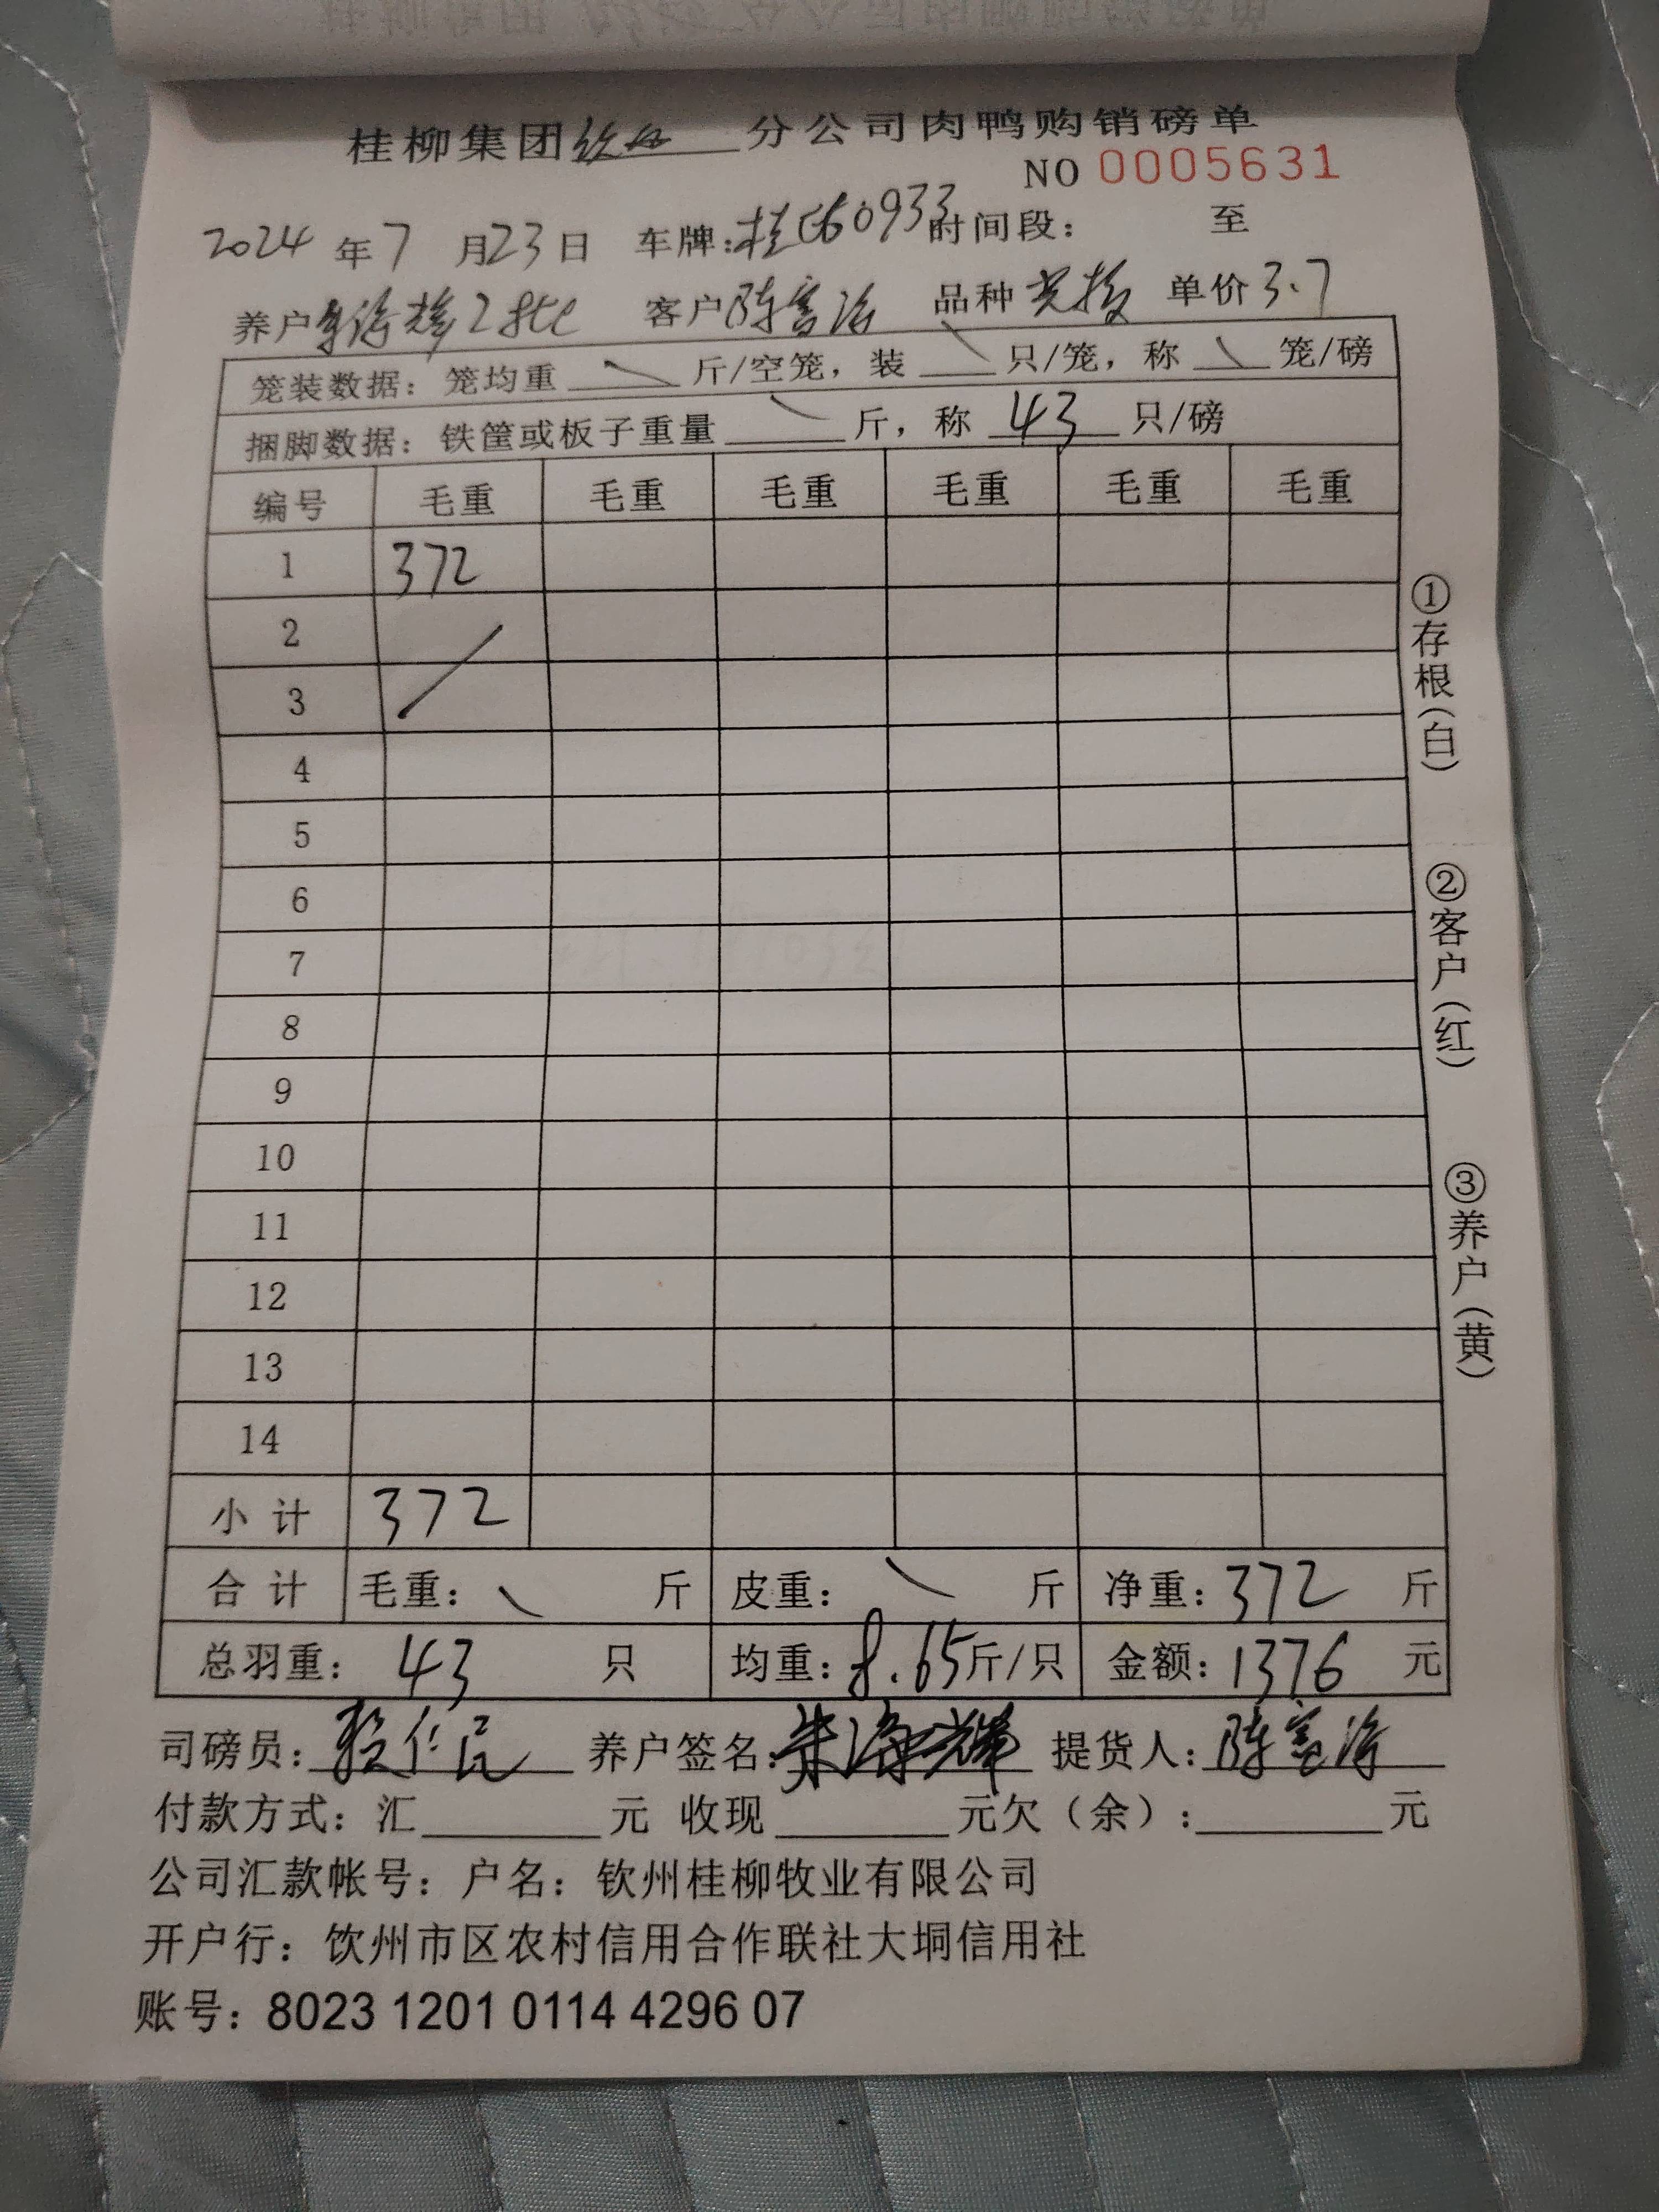 桂柳集团 分公司肉鸭购销磅单
NO 0005631
2024 年 7 月 23 日 车牌: 桂 60933 时间段: 至
养户 2批 客户 陈富海 品种 单价 3.7
笼装数据: 笼均重 斤/空笼, 装 只/笼, 称 笼/磅
捆脚数据: 铁筐或板子重量 斤, 称 43 只/磅
编号 毛重 毛重 毛重 毛重 毛重 毛重
1 372
2
3
4
5
6
7
8
9
10
11
12
13
14
小计 372
合计 毛重: 斤 皮重: 斤 净重: 372 斤
总羽重: 43 只 均重: 8.65 斤/只 金额: 1376 元
司磅员: 养户签名: 提货人: 陈富海
付款方式: 汇 元 收现 元欠(余): 元
公司汇款帐号: 户名: 钦州桂柳牧业有限公司
开户行: 饮州市区农村信用合作联社大垌信用社
账号: 8023 1201 0114 4296 07
①存根(白)
②客户(红)
③养户(黄)